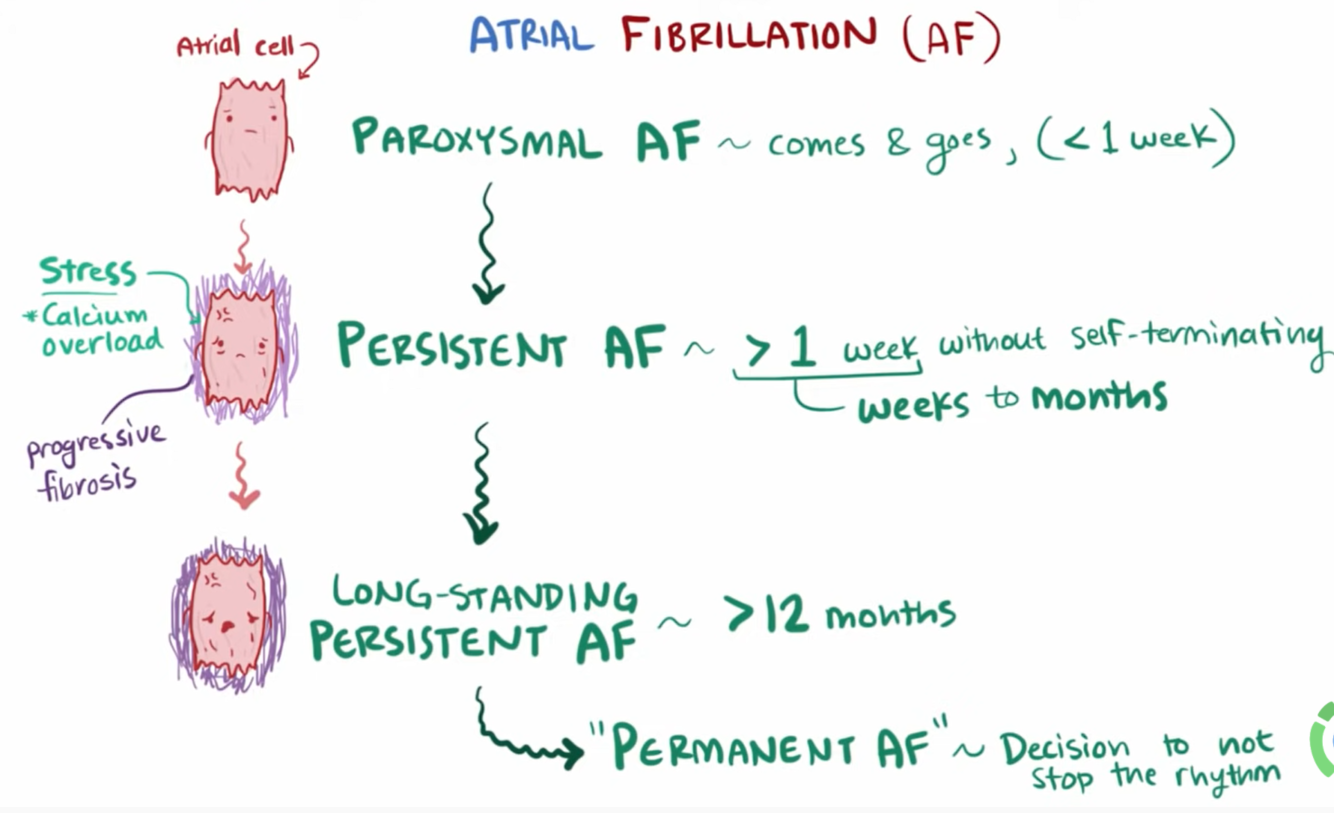 ATRIAL FIBRILLATION (AF)
Atrial cell
PAROXYSMAL AF ~ comes & goes, (< 1 week)
Stress
*Calcium
overload
PERSISTENT AF ~ > 1 week without self-terminating
weeks to months
progressive
fibrosis
LONG-STANDING
PERSISTENT AF ~ >12 months
"PERMANENT AF" ~ Decision to not
stop the rhythm